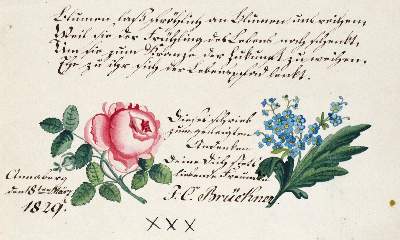 Blumen laß fröhlich an Blumen uns reihen
Weil sie der Frühling des Lebens noch schenkt.
Um sie zum Kranze der Zukunft zu weihen.
Ehe zu ihr sich der Lebenspfad lenkt.
Dieses schrieb
zum geneigten
Andenken
Deine Dich stets
liebende Freundin
J. C. Brückner
Annaburg
den 18ten März
1829.
XXX